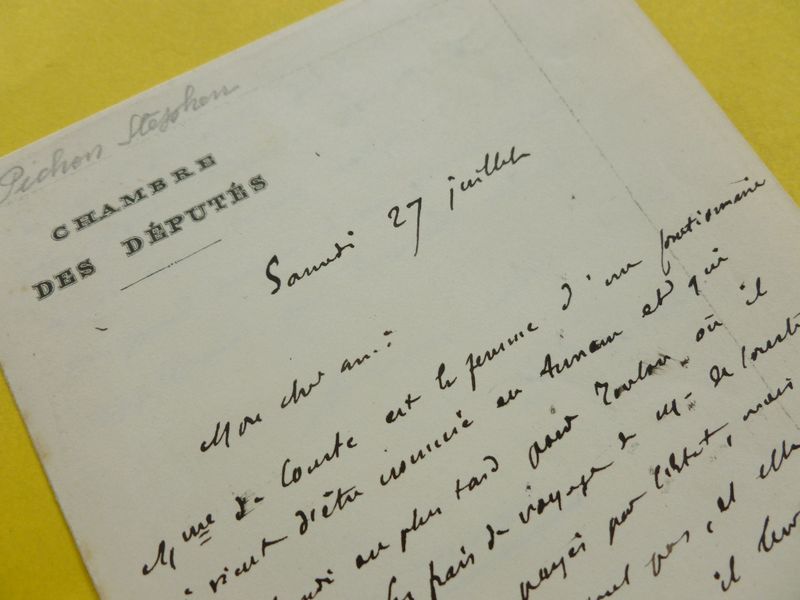 Pichon Stephen
CHAMBRE
DES DÉPUTÉS
Samedi 27 juillet
Mon cher ami
Mme de Courte est la femme d'un fonctionnaire
vient d'être nommé en Annam et qui
au plus tard pour Toulon où il
frais de voyage de Mme de Courte
payés par l'Etat, mais
pas, et elle
il leur